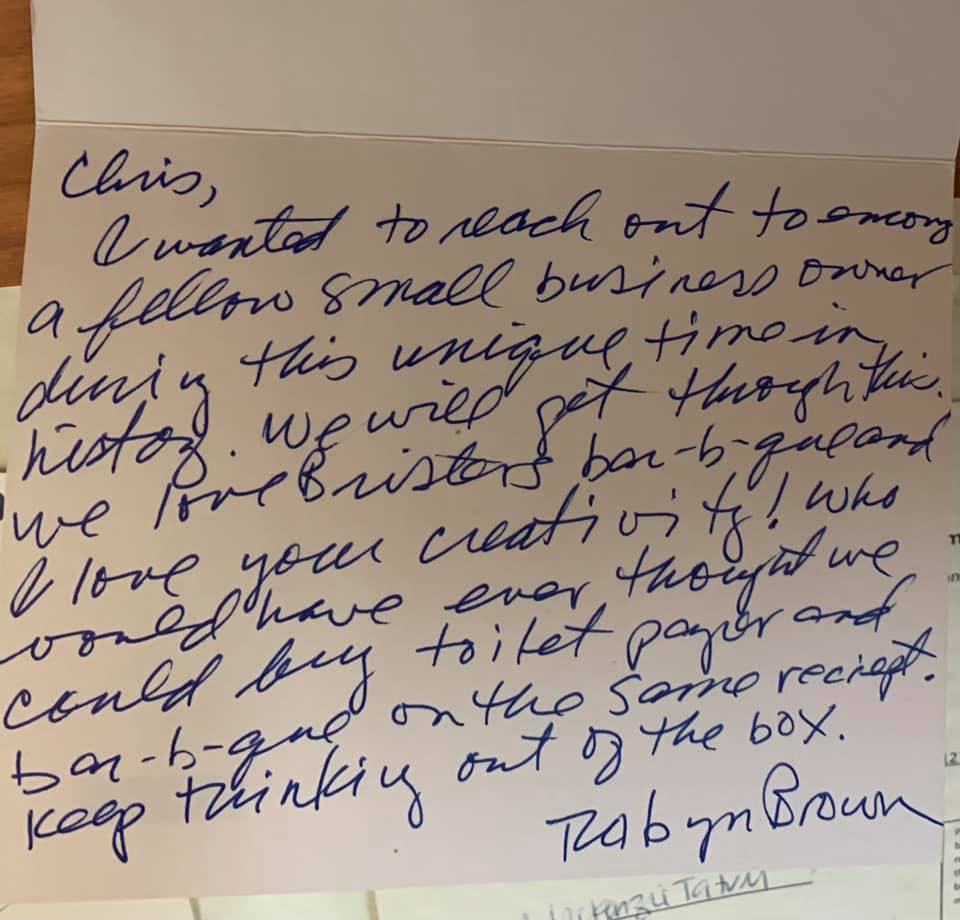 Chris,
I wanted to reach out to encorg
a fellow small business owner
during this unique time in
history. We will get through this.
We love Bristers bar-b-que and
I love your creativity! Who
would have ever thought we
could buy toilet paper and
bar-b-que on the same reciept.
Keep thinking out of the box.
Robyn Brown
Tatum